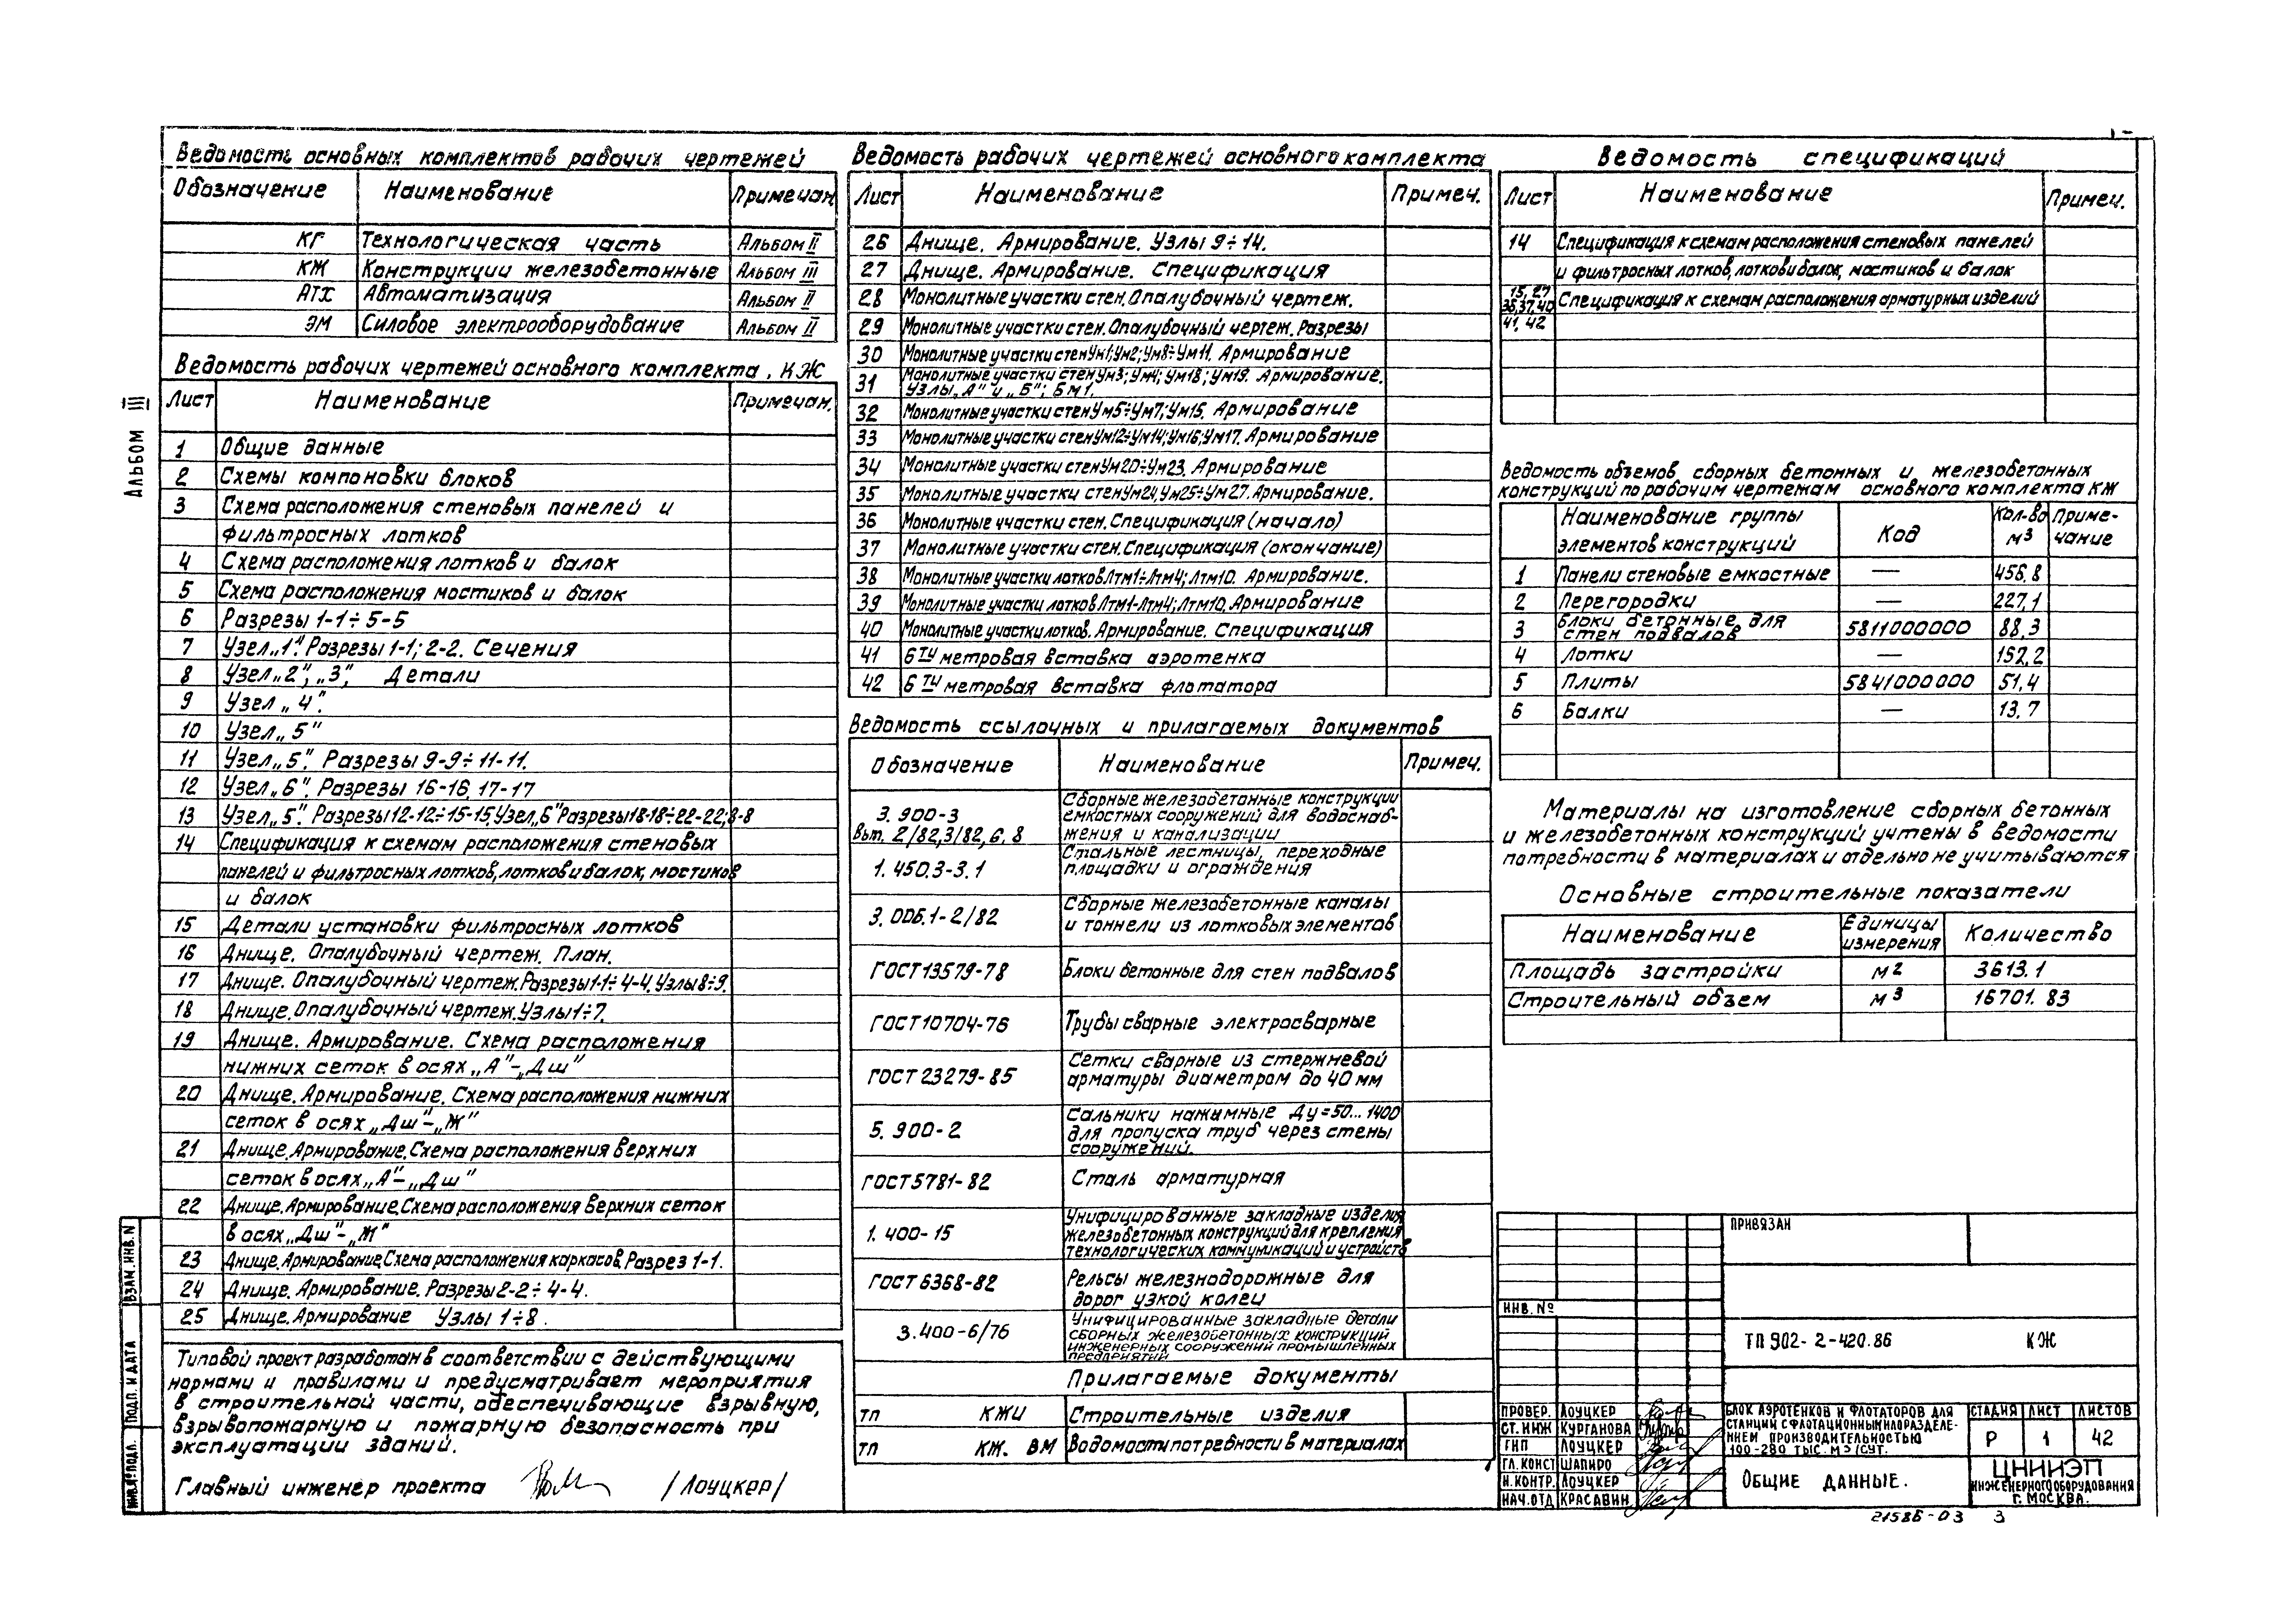 Альбом III
Ведомость основных комплектов рабочих чертежей
Обозначение Наименование Примечан.
КГ Технологическая часть Альбом II
КЖ Конструкции железобетонные Альбом III
АТХ Автоматизация Альбом II
ЭМ Силовое электрооборудование Альбом II
Ведомость рабочих чертежей основного комплекта, КЖ
Лист Наименование Примечан.
1 Общие данные
2 Схемы компоновки блоков
3 Схема расположения стеновых панелей и
фильтросных лотков
4 Схема расположения лотков и балок
5 Схема расположения мостиков и балок
6 Разрезы 1-1÷5-5
7 Узел „1". Разрезы 1-1; 2-2. Сечения
8 Узел „2", „3", Детали
9 Узел „4".
10 Узел „5"
11 Узел „5". Разрезы 9-9÷11-11.
12 Узел „6". Разрезы 16-16, 17-17
13 Узел „5". Разрезы 12-12÷15-15, Узел „6" Разрезы 18-18÷22-22; 8-8
14 Спецификация к схемам расположения стеновых
панелей и фильтросных лотков, лотков и балок, мостиков
и балок
15 Детали установки фильтросных лотков
16 Днище. Опалубочный чертеж. План.
17 Днище. Опалубочный чертеж. Разрезы 1-1÷4-4. Узлы 8÷9.
18 Днище. Опалубочный чертеж. Узлы 1÷7.
19 Днище. Армирование. Схема расположения
нижних сеток в осях „А"-„Дш"
20 Днище. Армирование. Схема расположения нижних
сеток в осях „Дш"-„Ж"
21 Днище. Армирование. Схема расположения верхних
сеток в осях „А"-„Дш"
22 Днище. Армирование. Схема расположения верхних сеток
в осях „Дш"-„Ж"
23 Днище. Армирование. Схема расположения каркасов. Разрез 1-1.
24 Днище. Армирование. Разрезы 2-2÷4-4.
25 Днище. Армирование Узлы 1÷8.
Типовой проект разработан в соответствии с действующими
нормами и правилами и предусматривает мероприятия
в строительной части, обеспечивающие взрывную,
взрывопожарную и пожарную безопасность при
эксплуатации зданий.
Главный инженер проекта /Лоуцкер/
ВЗАМ. ИНВ. N
ПОДП. И ДАТА
ИНВ. № ПОДЛ.
Ведомость рабочих чертежей основного комплекта
Лист Наименование Примеч.
26 Днище. Армирование. Узлы 9÷14.
27 Днище. Армирование. Спецификация
28 Монолитные участки стен. Опалубочный чертеж.
29 Монолитные участки стен. Опалубочный чертеж. Разрезы
30 Монолитные участки стен Ум1; Ум2; Ум8÷Ум11. Армирование
31 Монолитные участки стен Ум3; Ум4; Ум18; Ум19. Армирование.
Узлы „А" и „Б"; Бм1.
32 Монолитные участки стен Ум5÷Ум7; Ум15. Армирование
33 Монолитные участки стен Ум12÷Ум14; Ум16, Ум17. Армирование
34 Монолитные участки стен Ум20÷Ум23. Армирование
35 Монолитные участки стен Ум24, Ум25÷Ум27. Армирование.
36 Монолитные участки стен. Спецификация (начало)
37 Монолитные участки стен. Спецификация (окончание)
38 Монолитные участки лотков Лтм1÷Лтм4; Лтм10. Армирование.
39 Монолитные участки лотков Лтм1-Лтм4; Лтм10. Армирование
40 Монолитные участки лотков. Армирование. Спецификация
41 6ти метровая вставка аэротенка
42 6ти метровая вставка флотатора
Ведомость ссылочных и прилагаемых документов
Обозначение Наименование Примеч.
3.900-3 Вып. 2/82, 3/82, 6, 8 Сборные железобетонные конструкции
емкостных сооружений для водоснаб-
жения и канализации
1.450.3-3.1 Стальные лестницы, переходные
площадки и ограждения
3.006.1-2/82 Сборные железобетонные каналы
и тоннели из лотковых элементов
ГОСТ 13579-78 Блоки бетонные для стен подвалов
ГОСТ 10704-76 Трубы сварные электросварные
ГОСТ 23279-85 Сетки сварные из стержневой
арматуры диаметром до 40 мм
5.900-2 Сальники нажимные Ду=50...1400
для пропуска труб через стены
сооружений.
ГОСТ 5781-82 Сталь арматурная
1.400-15 Унифицированные закладные изделия
железобетонных конструкций для крепления
технологических коммуникаций и устройств
ГОСТ 6368-82 Рельсы железнодорожные для
дорог узкой колеи
3.400-6/76 Унифицированные закладные детали
сборных железобетонных конструкций
инженерных сооружений промышленных
предприятий
Прилагаемые документы
ТП КЖИ Строительные изделия
ТП КЖ. ВМ Ведомости потребности в материалах
Ведомость спецификаций
Лист Наименование Примеч.
14 Спецификация к схемам расположения стеновых панелей
и фильтросных лотков, лотков и балок, мостиков и балок
15, 27 36, 37, 40 41, 42 Спецификация к схемам расположения арматурных изделий
Ведомость объемов сборных бетонных и железобетонных
конструкций по рабочим чертежам основного комплекта КЖ
Наименование группы элементов конструкций Код Кол-во м3 Приме-чание
1 Панели стеновые емкостные — 456.8
2 Перегородки — 227,1
3 Блоки бетонные для стен подвалов 5811000000 88,3
4 Лотки — 152,2
5 Плиты 5841000000 51,4
6 Балки — 13.7
Материалы на изготовление сборных бетонных
и железобетонных конструкций учтены в ведомости
потребности в материалах и отдельно не учитываются
Основные строительные показатели
Наименование Единицы измерения Количество
Площадь застройки м2 3613.1
Строительный объем м3 16701.83
ПРИВЯЗАН
ИНВ. №
ТП 902-2-420.86 КЖ
ПРОВЕР. ЛОУЦКЕР
СТ. ИНЖ КУРГАНОВА
ГИП ЛОУЦКЕР
ГЛ. КОНСТ ШАПИРО
Н. КОНТР. ЛОУЦКЕР
НАЧ. ОТД КРАСАВИН
БЛОК АЭРОТЕНКОВ И ФЛОТАТОРОВ ДЛЯ
СТАНЦИЙ С ФЛОТАЦИОННЫМ ИЛОРАЗДЕЛЕ-
НИЕМ ПРОИЗВОДИТЕЛЬНОСТЬЮ
100-280 ТЫС. М3/СУТ.
СТАДИЯ ЛИСТ ЛИСТОВ
Р 1 42
ОБЩИЕ ДАННЫЕ.
ЦНИИЭП
ИНЖЕНЕРНОГО ОБОРУДОВАНИЯ
Г. МОСКВА.
21586-03 3